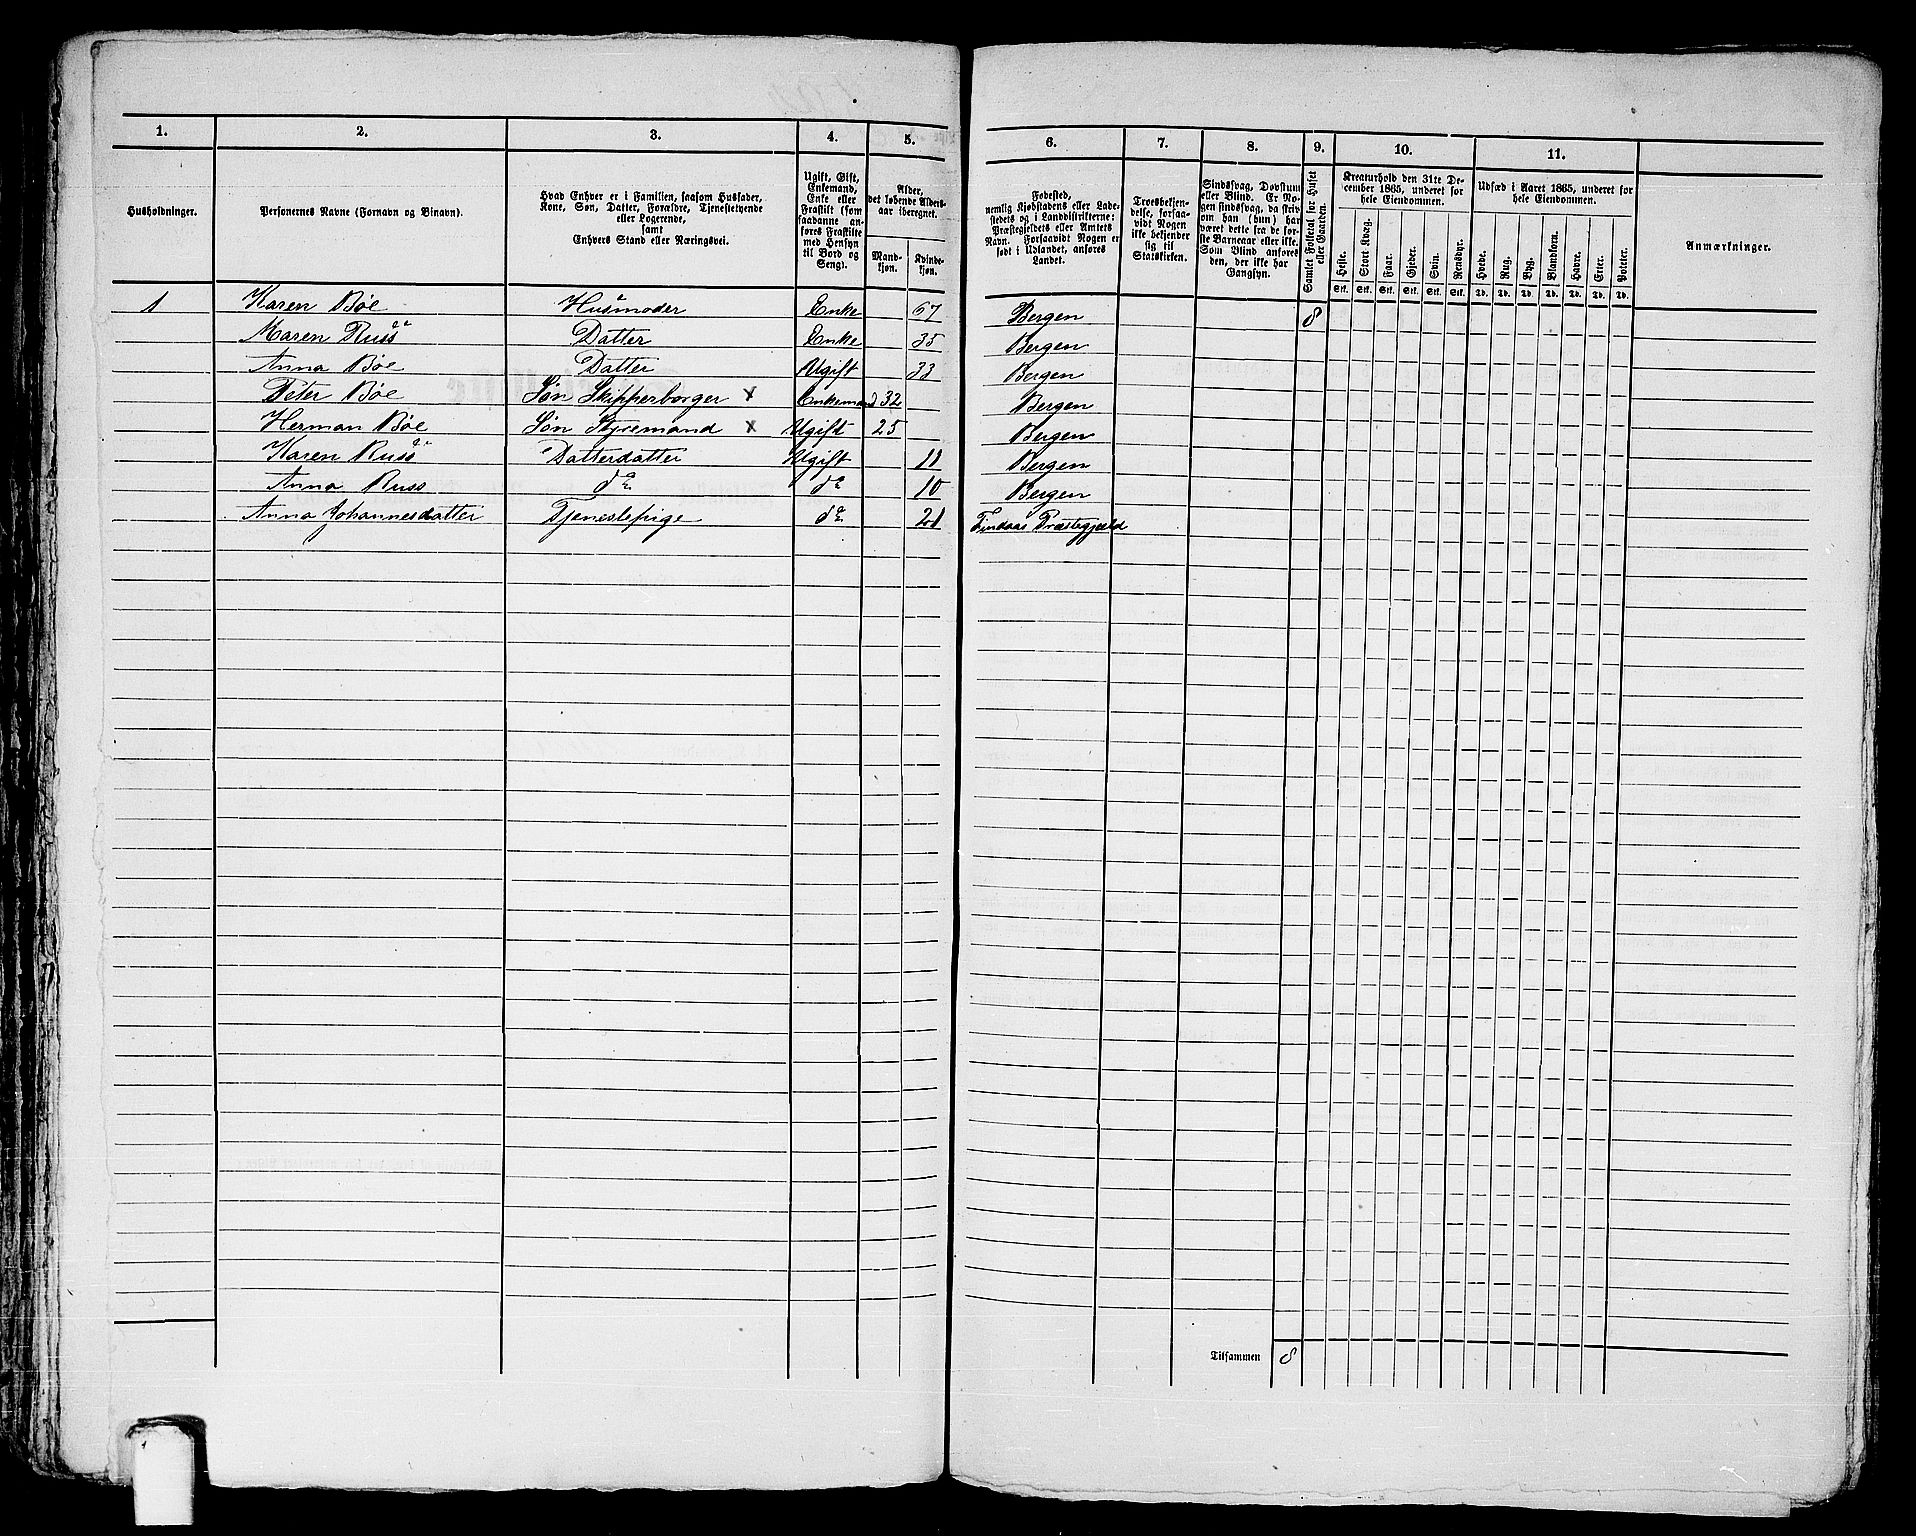 1. 2. 3. 4. 5. 6. 7. 8. 9. 10. 11.
Husholdninger.
Personernes Navne (Fornavn og Binavn).
Hvad Enhver er i Familien, saasom Husfader,
Kone, Søn, Datter, Forældre, Tjenestetyende
eller Logerende,
samt
Enhvers Stand eller Næringsvei.
Ugift, Gift,
Enkemand,
Enke eller
Fraskilt (som
saadanne an-
føres Fraskilte
med Hensyn
til Bord og
Seng).
Alder,
det løbende Alders-
aar iberegnet.
Mand-
kjøn.
Kvinde-
kjøn.
Fødested,
nemlig Kjøbstadens eller Lade-
stedets og i Landdistrikterne:
Præstegjeldets eller Amtets
Navn. Forsaavidt Nogen er
født i Udlandet, anføres
Landet.
Troesbekjen-
delse, forsaa-
vidt Nogen
ikke bekjender
sig til
Statskirken.
Sindssvag, Døvstum
eller Blind. Er No-
gen sindssvag, da skriv
om han (hun) har
været dette fra de før-
ste Barneaar eller ikke.
Som Blind anføres
den, der ikke har
Gangsyn.
Samlet Folketal for Huset
eller Gaarden.
Kreaturhold den 31te De-
cember 1865, underet for
hele Eiendommen.
Heste. Stort Kvæg. Faar. Gjeder. Svin. Rensdyr.
Stk. Stk. Stk. Stk. Stk. Stk.
Udsæd i Aaret 1865, underet for
hele Eiendommen.
Hvede. Rug. Byg. Blandkorn. Havre. Erter. Poteter.
Td. Td. Td. Td. Td. Td. Td.
Anmærkninger.
1 Karen Bøe Husmoder Enke 67 Bergen 8
Maren Russ Datter Enke 35 Bergen
Anna Bøe Datter Ugift 33 Bergen
Peter Bøe Søn Skipperborger x Enkemand 32 Bergen
Herman Bøe Søn Styremand x Ugift 25 Bergen
Karen Russ Datterdatter Ugift 11 Bergen
Anna Russ do do 10 Bergen
Anna Johannesdatter Tjenestepige do 21 Findaas Præstegjæld
Tilsammen 8